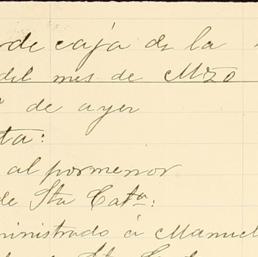 de caja de la
del mes de Mzo
de ayer
ta:
al pormenor
de Sta Catª:
ministrado á Manuel